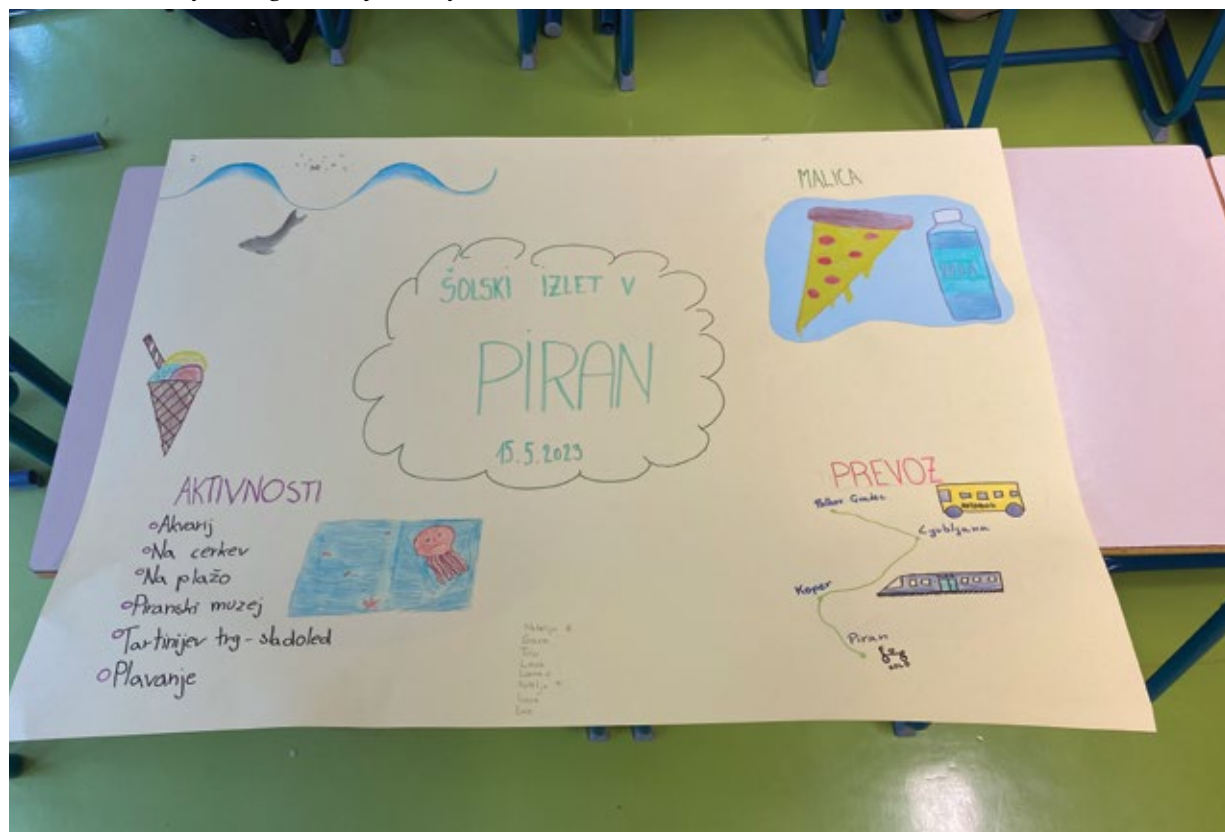 MALICA
VODA
ŠOLSKI IZLET V
PIRAN
15.5.2023
AKTIVNOSTI
Akvarij
Na cerkev
Na plažo
Piranski muzej
Tartinijev trg - sladoled
Plavanje
PREVOZ
Polhov Gradec
Ljubljana
Koper
Piran